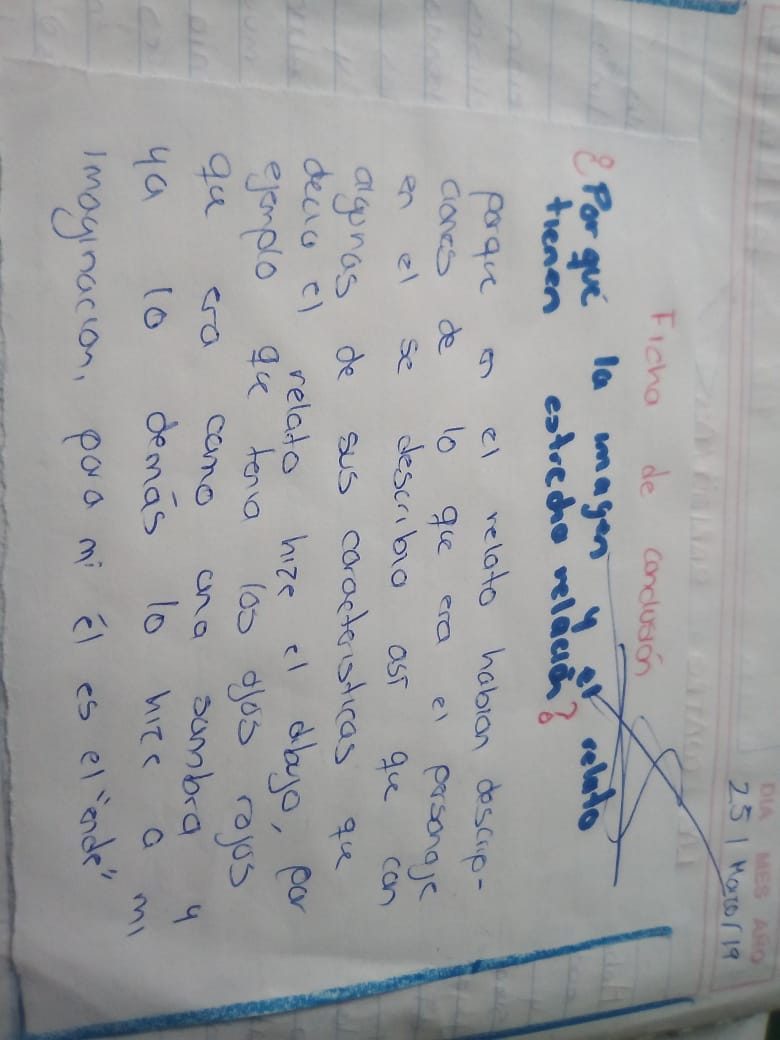 DIA MES AÑO
25 | Marzo / 19
Ficha de conclusión
¿Por qué la imagen y el relato
tienen estrecha relación?
porque en el relato habian descrip-
ciones de lo que era el personaje
en el se describio asi que con
algunas de sus caracteristicas que
decia el relato hize el dibujo, por
ejemplo que tenia los ojos rojos
que era como una sombra y
ya lo demás lo hize a mi
imaginacion, para mi él es el "ende"